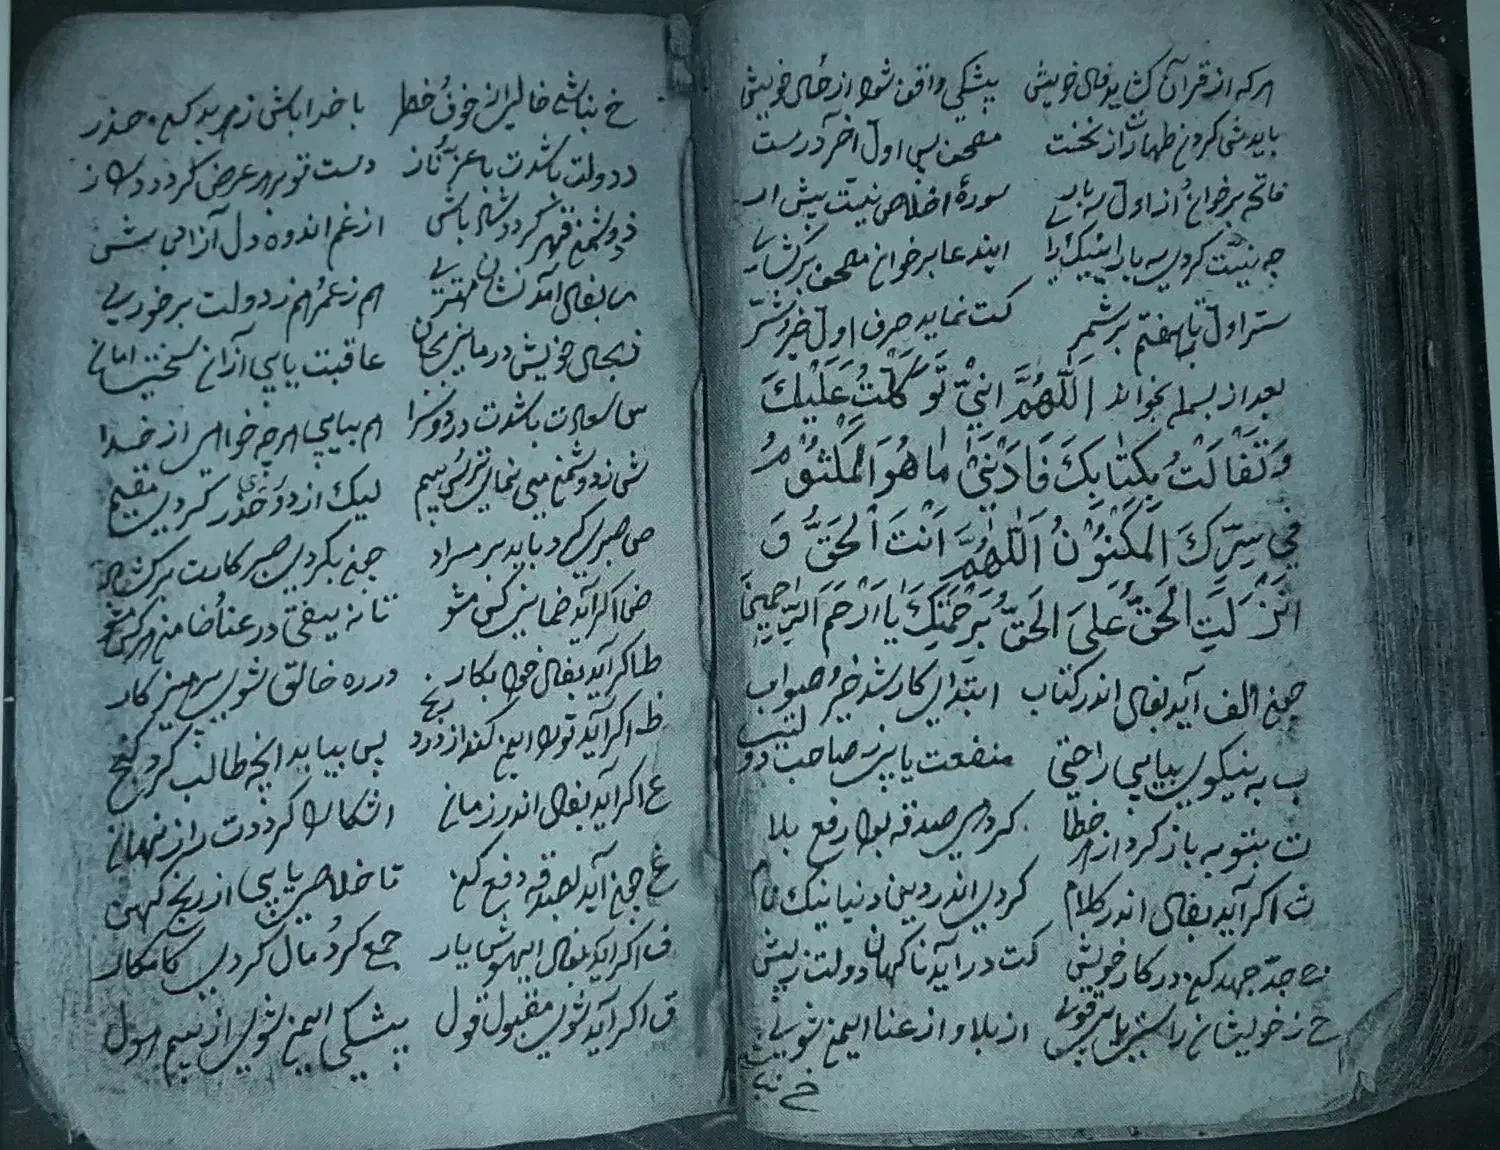 هر که از قرآن گشاید فال خویش بیشکی واقف شود از حال خویش
بایدش کردن طهارت از نخست مصحف اول آخر درست
فاتحه برخوان از اول سه بار سوره اخلاص نیت پیش ار
چه نیت کردی سه بار این دعا برخوان مصحف برگشای
ستر اول تا بهفتم برشمر کت نماید حرف اول خیر و شر
بعد از بسمله بخواند اَللّٰهُمَّ اِنّیْ تَوَکَّلْتُ عَلَیْكَ
وَ تَفَالْتُ بِکِتَابِكَ فَاَرْنِیْ مٰا هُوَ الْمَکْتُوْمُ
فِیْ سِرِّكَ الْمَکْنُوْنُ اَللّٰهُمَّ اَنْتَ الْحَقُّ وَ
اَنْزَلْتَ الْحَقَّ عَلیَ الْحَقِّ بِرَحْمَتِكَ یٰا اَرْحَمَ الرَّاحِمِیْنَ
چون الف آید بفال اندر کتاب ابتدای کار شد خیر و صواب
ب به نیکویی بیابی راحتی منفعت یابی ز صاحب دولتی
ت بتوبه باز کرد از هر خطا کردهی صدقه بود رفع بلا
ث اگر آید بفال اندر کلام کردی اندر دین و دنیا نیك نام
ج جد جهد کن در کار خویش کت در آید ناکهان دولت ز پیش
ح ز خویشان از بلا و از عنا ایمن شوی
خ نباشی
خ نباشی خالی از خوف و خطر با خدا باش ز هر بد کن حذر
د دولت باشدت با عز و ناز دست تو بر هر عرض کردد دراز
ذ دشمن قهر کردد شاد باش از غم اندوه دل آزاد باش
ر بفال آمد نشان مهتری هم ز عمر هم ز دولت برخوری
ز بحال خویش درمانی عاقبت یابی از آن سختی امان
س سعادت باشدت در دو سرا هم بیابی هر چه خواهی از خدا
ش ز دشمن می نماید ترس بیم لیك از دزدی حذر کردی مقیم
ص صبری کرد باید بر مراد چون بکردی صبر کارت برکشاد
ض اگر آید ضامن کس مشو تا نه بیفتی در عنا ضامن مشو
ط اگر آید بفال خود بکار در ره خالق شوی پرهیز کار
ظ اگر آید تو را ایمن کند از درد رنج پس بیابد انچه طالب کرد گنج
ع اگر آید بفال اندر زمانی اشکارا کرددت راز نهانی
غ چون آید بصدقه دفع کن تا خلاصی یابی از رنج کهن
ف اگر آید بفال ای هوش یار جمع کرد مال کردی کامکار
ق اگر آید شوی مقبول قول بیشکی ایمن شوی از بیم هول